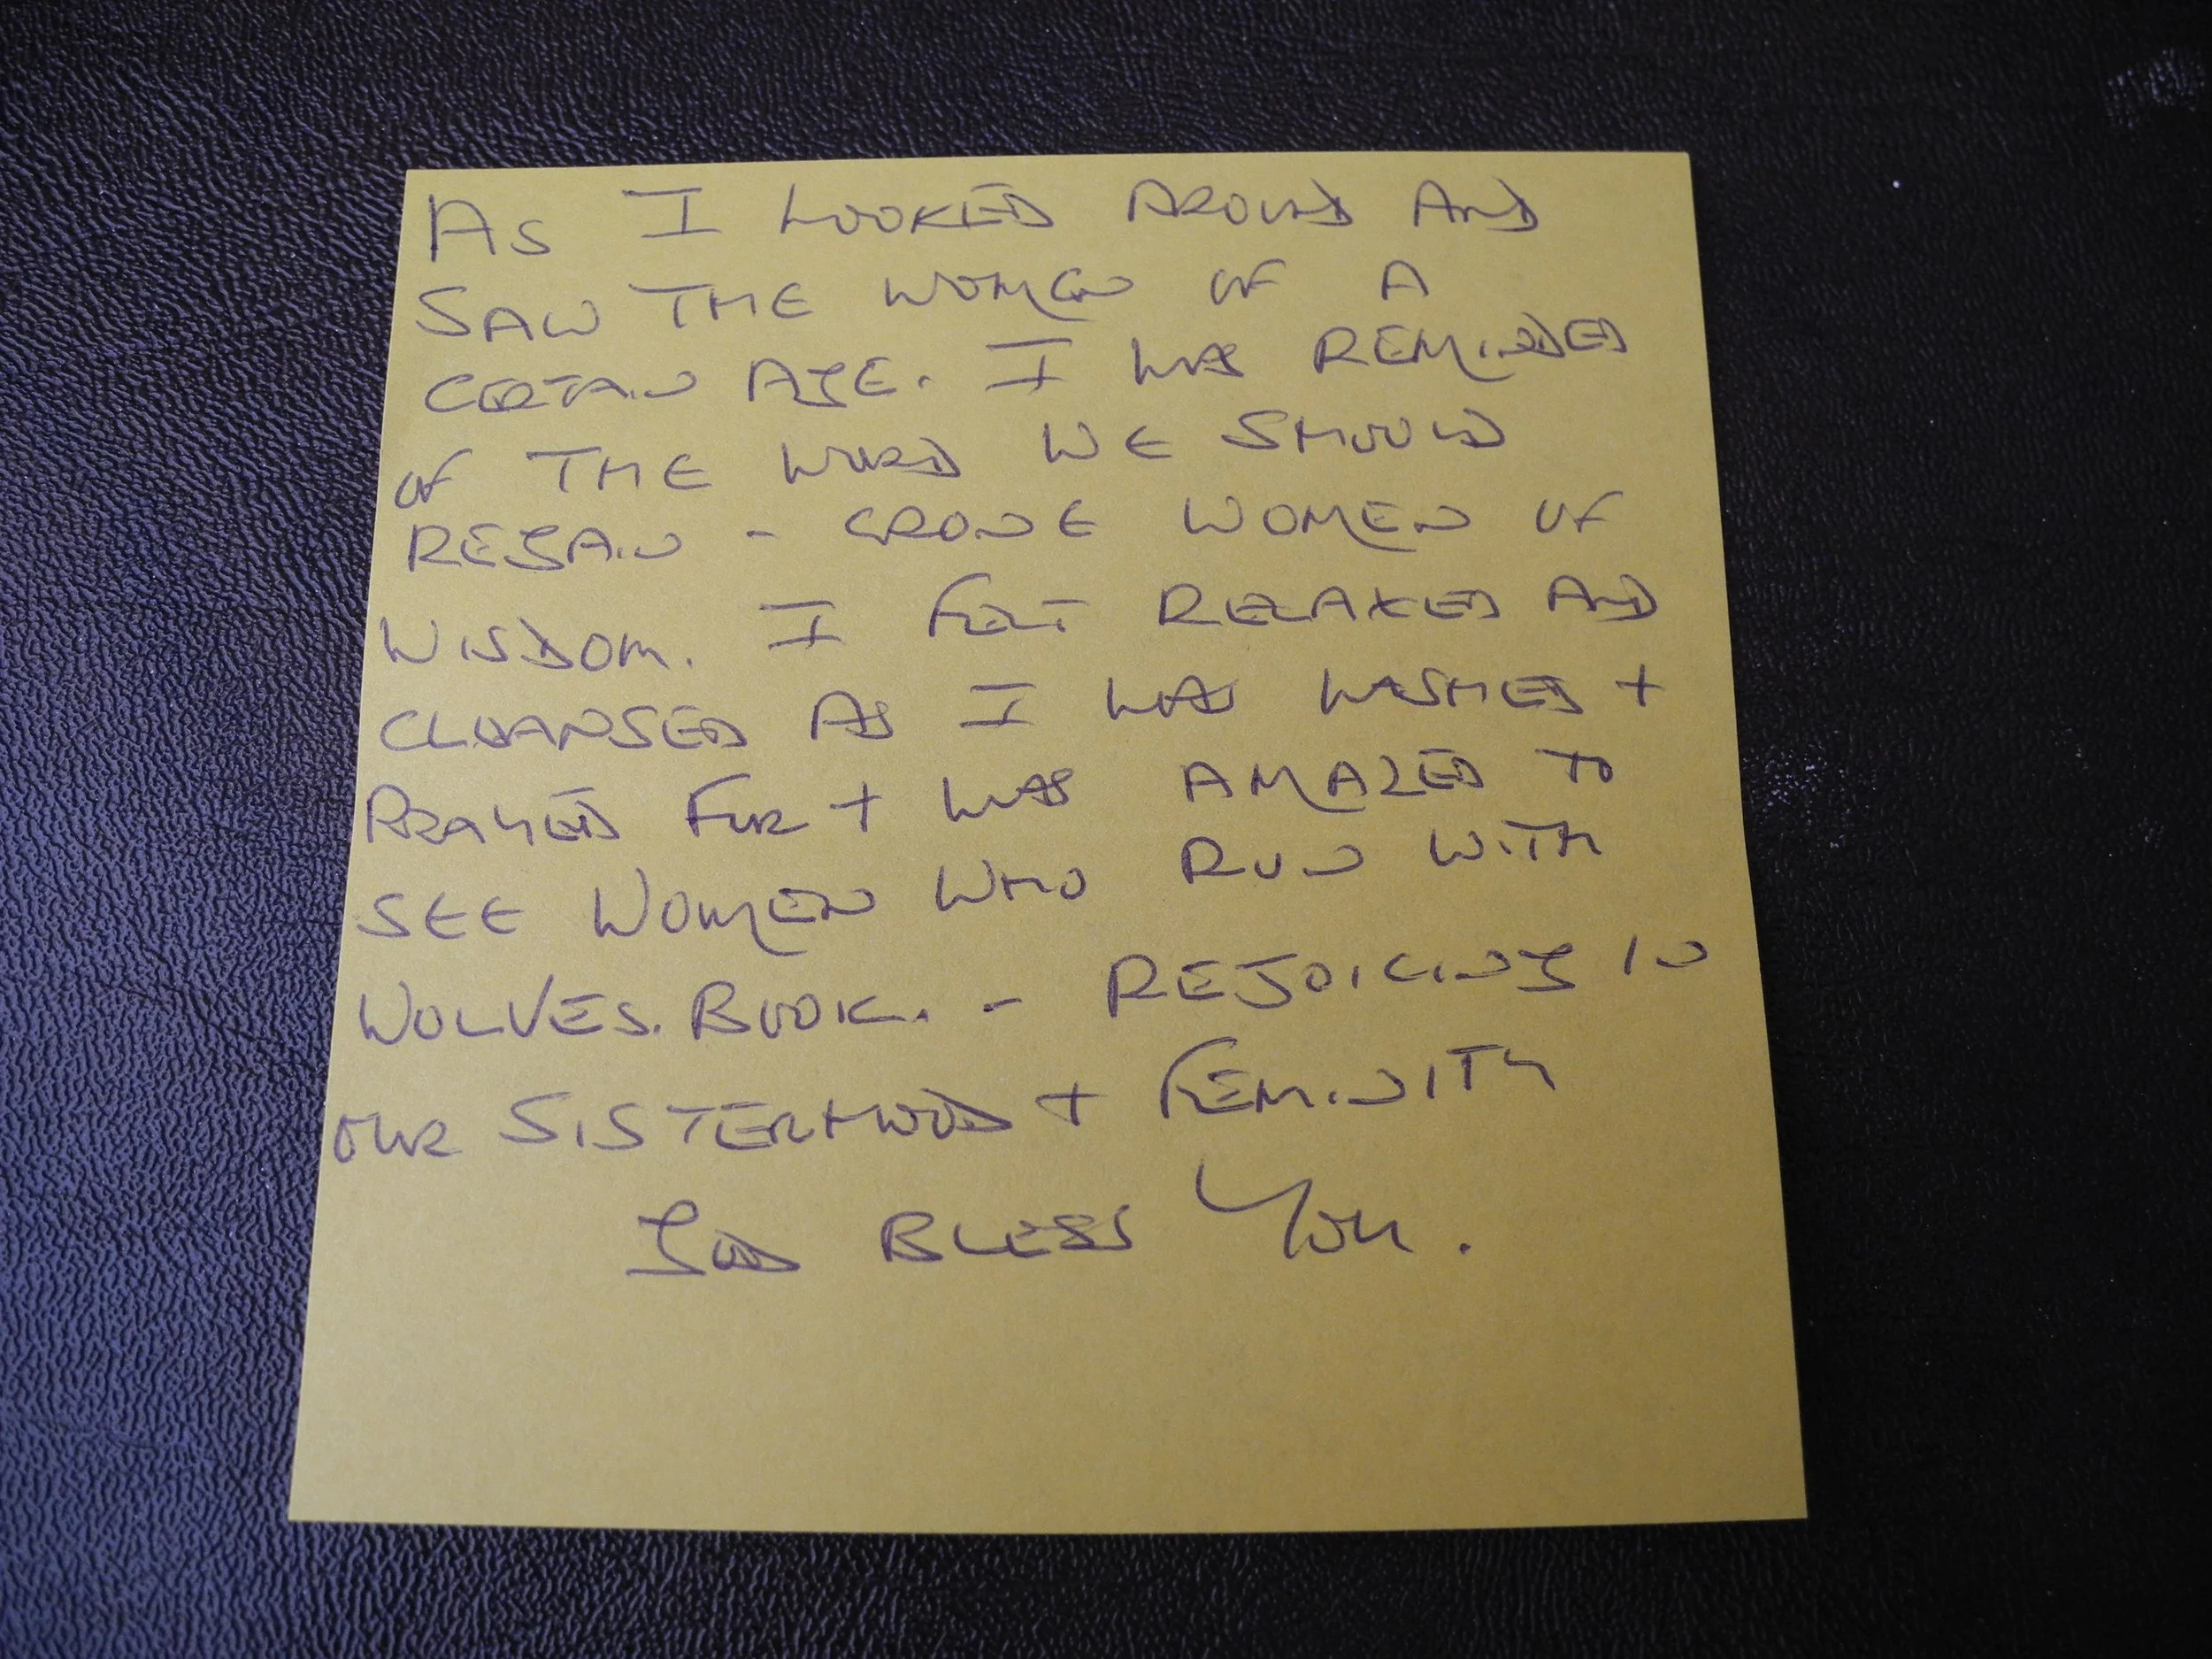 AS I LOOKED AROUND AND
SAW THE WOMEN OF A
CERTAIN AGE. I WAS REMINDED
OF THE WORD WE SHOULD
REGAIN - CRONE WOMEN OF
WISDOM. I FELT RELAXED AND
CLEANSED AS I WAS WASHED +
PRAYED FOR + WAS AMAZED TO
SEE WOMEN WHO RUN WITH
WOLVES. BOOK. - REJOICING IN
OUR SISTERHOOD + FEMINITY
GOD BLESS YOU.